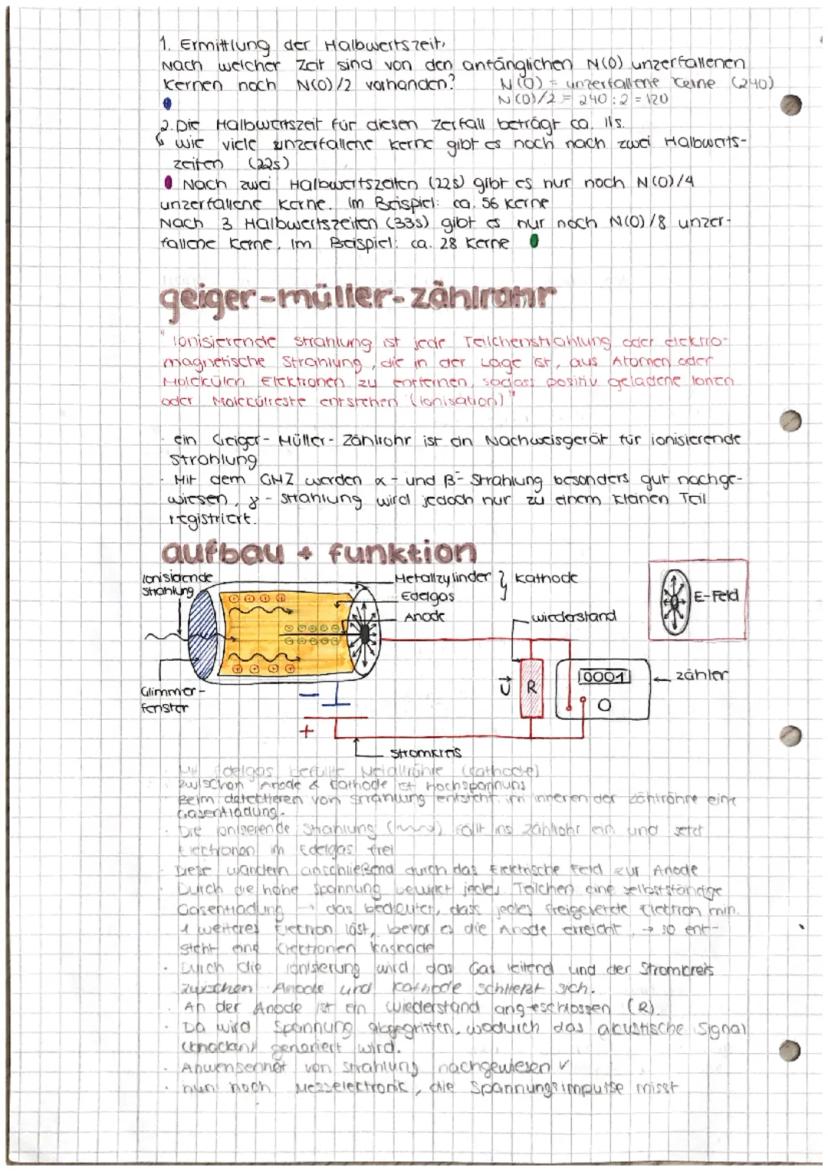 1. Ermittlung der Halbwertszeit,
Nach welcher Zeit sind von den anfänglichen N(0) unzerfallenen
Kernen noch N(0)/2 vorhanden? N(0) = unzerfallene Kerne (240)
N(0)/2 = 240:2 = 120
2. Die Halbwertszeit für diesen Zerfall beträgt ca. 11s.
wie viele unzerfallene Kerne gibt es noch nach zwei Halbwerts-
zeiten (22s)
Nach zwei Halbwertszeiten (22s) gibt es nur noch N(0)/4
unzerfallene Kerne. Im Beispiel: ca. 56 Kerne
Nach 3 Halbwertszeiten (33s) gibt es nur noch N(0)/8 unzer-
fallene Kerne. Im Beispiel: ca. 28 Kerne
geiger-müller-zählrohr
"Ionisierende Strahlung ist jede Teilchenstrahlung oder elektro-
magnetische Strahlung, die in der Lage ist, aus Atomen oder
Molekülen Elektronen zu entfernen, sodass positiv geladene Ionen
oder Molekülreste entstehen (Ionisation)"
· ein Geiger-Müller-Zählrohr ist ein Nachweisgerät für ionisierende
Strahlung
· Mit dem GMZ werden α- und β-Strahlung besonders gut nachge-
wiesen, γ-Strahlung wird jedoch nur zu einem kleinen Teil
registriert.
aufbau + funktion
Ionisierende
Strahlung
Metallzylinder } Kathode
Edelgas
Anode
E-Feld
wiederstand
U
R
0001
zähler
Glimmer-
fenster
−
+
Stromkreis
· Mit Edelgas befüllte Metallröhre (Kathode)
· zwischen Anode & Kathode ist Hochspannung
· Beim detektieren von Strahlung entsteht im inneren der Zählröhre eine
Gasentladung.
· Die ioniserende Strahlung fällt ins Zählrohr ein und setzt
Elektronen im Edelgas frei
· Diese wandern anschließend durch das Elektrische Feld zur Anode
· Durch die hohe Spannung bewirkt jedes Teilchen eine selbstständige
Gasentladung → das bedeutet, dass jedes freigewerde Elektron min.
1 weiteres Elektron löst, bevor es die Anode erreicht, → so ent-
steht eine Elektronen kaskade
· Durch die Ionisierung wird das Gas leitend und der Stromkreis
zwischen Anode und Kathode schließt sich.
· An der Anode ist ein wiederstand angeschlossen (R).
· Da wird Spannung abgegriffen, wodurch das akustische Signal
(knacken) generiert wird.
· Anwesenheit von Strahlung nachgewiesen ✓
· nun noch Messelectronic, die Spannungsimpulse misst